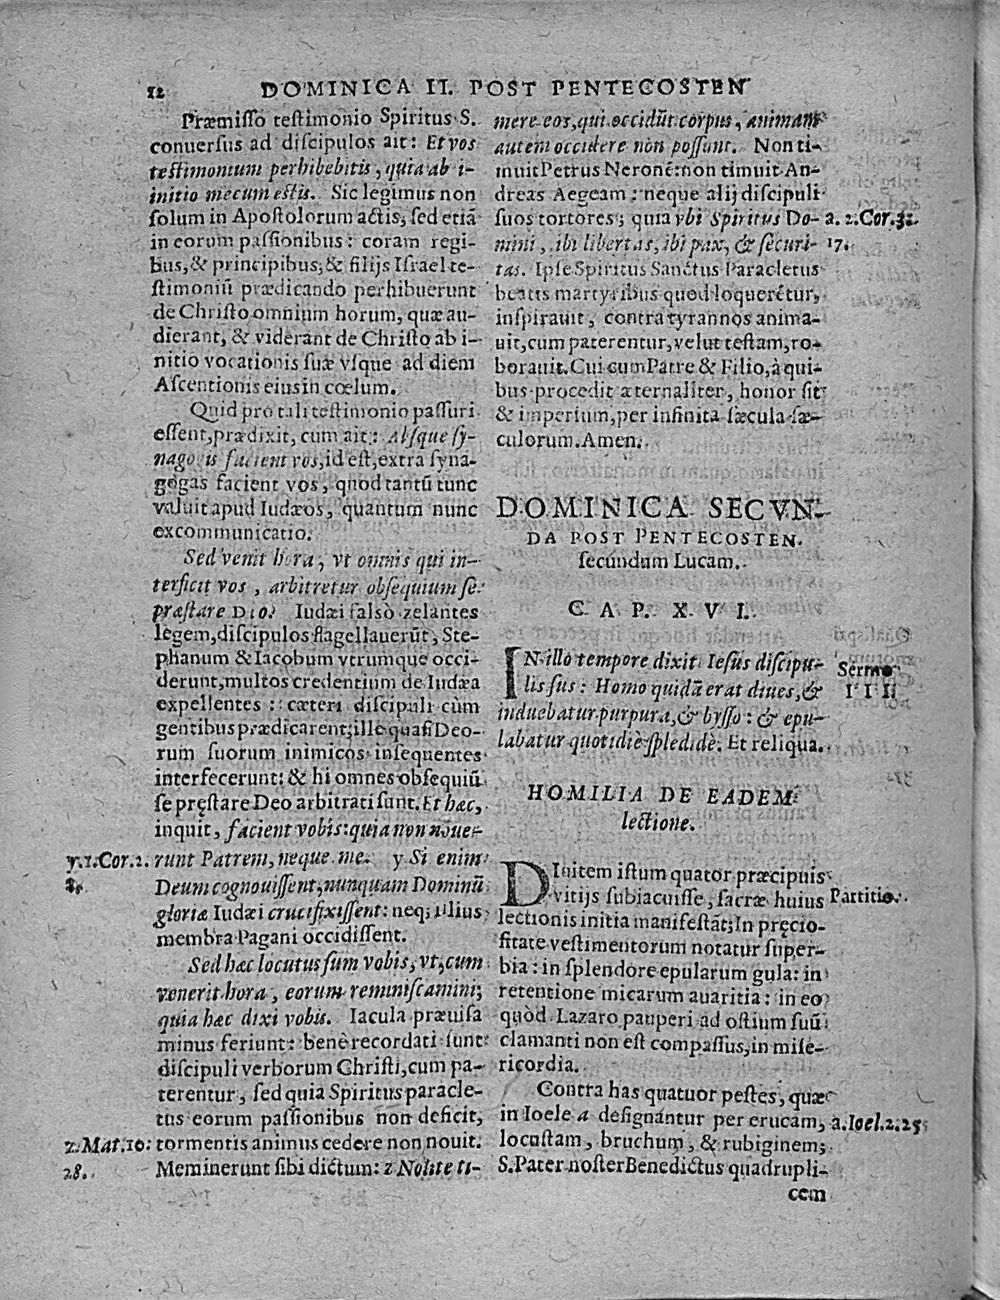 12 DOMINICA II. POST PENTECOSTEN
Præmisso testimonio Spiritus S.
conuersus ad discipulos ait: Et vos
testimonium perhibebitis, quia ab i-
initio mecum estis. Sic legimus non
solum in Apostolorum actis, sed etiã
in eorum passionibus: coram regi-
bus, & principibus, & filijs Israel te-
stimoniũ prædicando perhibuerunt
de Christo omnium horum, quæ au-
dierant, & viderant de Christo ab i-
nitio vocationis suæ vsque ad diem
Ascentionis eius in cœlum.
Quid pro tali testimonio passuri
essent, prædixit, cum ait: Absque sy-
nagogis facient vos, id est, extra syna-
gogas facient vos, quod tantũ tunc
valuit apud Iudæos, quantum nunc
excommunicatio.
Sed venit hora, vt omnis qui in-
terficit vos, arbitretur obsequium se
præstare DEO. Iudæi falsò zelantes
legem, discipulos flagellauerũt, Ste-
phanum & Iacobum vtrumque occi-
derunt, multos credentium de Iudæa
expellentes: cæteri discipuli cùm
gentibus prædicarent, ille quasi Deo-
rum suorum inimicos insequentes
interfecerunt: & hi omnes obsequiũ
se pręstare Deo arbitrati sunt. Et hæc,
inquit, facient vobis: quia non noue-
y.1.Cor.2. runt Patrem, neque me. y Si enim
8. Deum cognouissent, nunquam Dominũ
gloriæ Iudæi crucifixissent: neq; illius
membra Pagani occidissent.
Sed hæc locutus sum vobis, vt, cum
venerit hora, eorum reminiscamini;
quia hæc dixi vobis. Iacula præuisa
minus feriunt: benè recordati sunt
discipuli verborum Christi, cum pa-
terentur, sed quia Spiritus paracle-
tus eorum passionibus non deficit,
z.Mat.10. tormentis animus cedere non nouit.
28. Meminerunt sibi dictum: z Nolite ti-
mere eos, qui occidũt corpus, animam
autem occidere non possunt. Non ti-
muit Petrus Neronẽ: non timuit An-
dreas Aegeam: neque alij discipuli
suos tortores; quia vbi Spiritus Do- a.2.Cor.3.
mini, ibi libertas, ibi pax, & securi- 17.
tas. Ipse Spiritus Sanctus Paracletus
beatis martyribus quod loquerẽtur,
inspirauit, contra tyrannos anima-
uit, cum paterentur, velut testam, ro-
borauit. Cui cum Patre & Filio, à qui-
bus procedit æternaliter, honor sit
& imperium, per infinita sæcula sæ-
culorum. Amen.
DOMINICA SECVN-
DA POST PENTECOSTEN.
secundum Lucam.
CAP. XVI.
IN illo tempore dixit Iesus discipu- Sermo
lis sus: Homo quidã erat diues, & III
induebatur purpura, & bysso: & epu-
labatur quotidiè splẽdidè. Et reliqua.
HOMILIA DE EADEM
lectione.
DIuitem istum quator præcipuis
vitijs subiacuisse, sacræ huius Partitio.
lectionis initia manifestãt; In pręcio-
sitate vestimentorum notatur super-
bia: in splendore epularum gula: in
retentione micarum auaritia: in eo
quòd Lazaro pauperi ad ostium suũ
clamanti non est compassus, in mise-
ricordia.
Contra has quatuor pestes, quæ
in Ioele a designantur per erucam, a.Ioel.2.25
locustam, bruchum, & rubiginem;
S. Pater noster Benedictus quadrupli-
cem